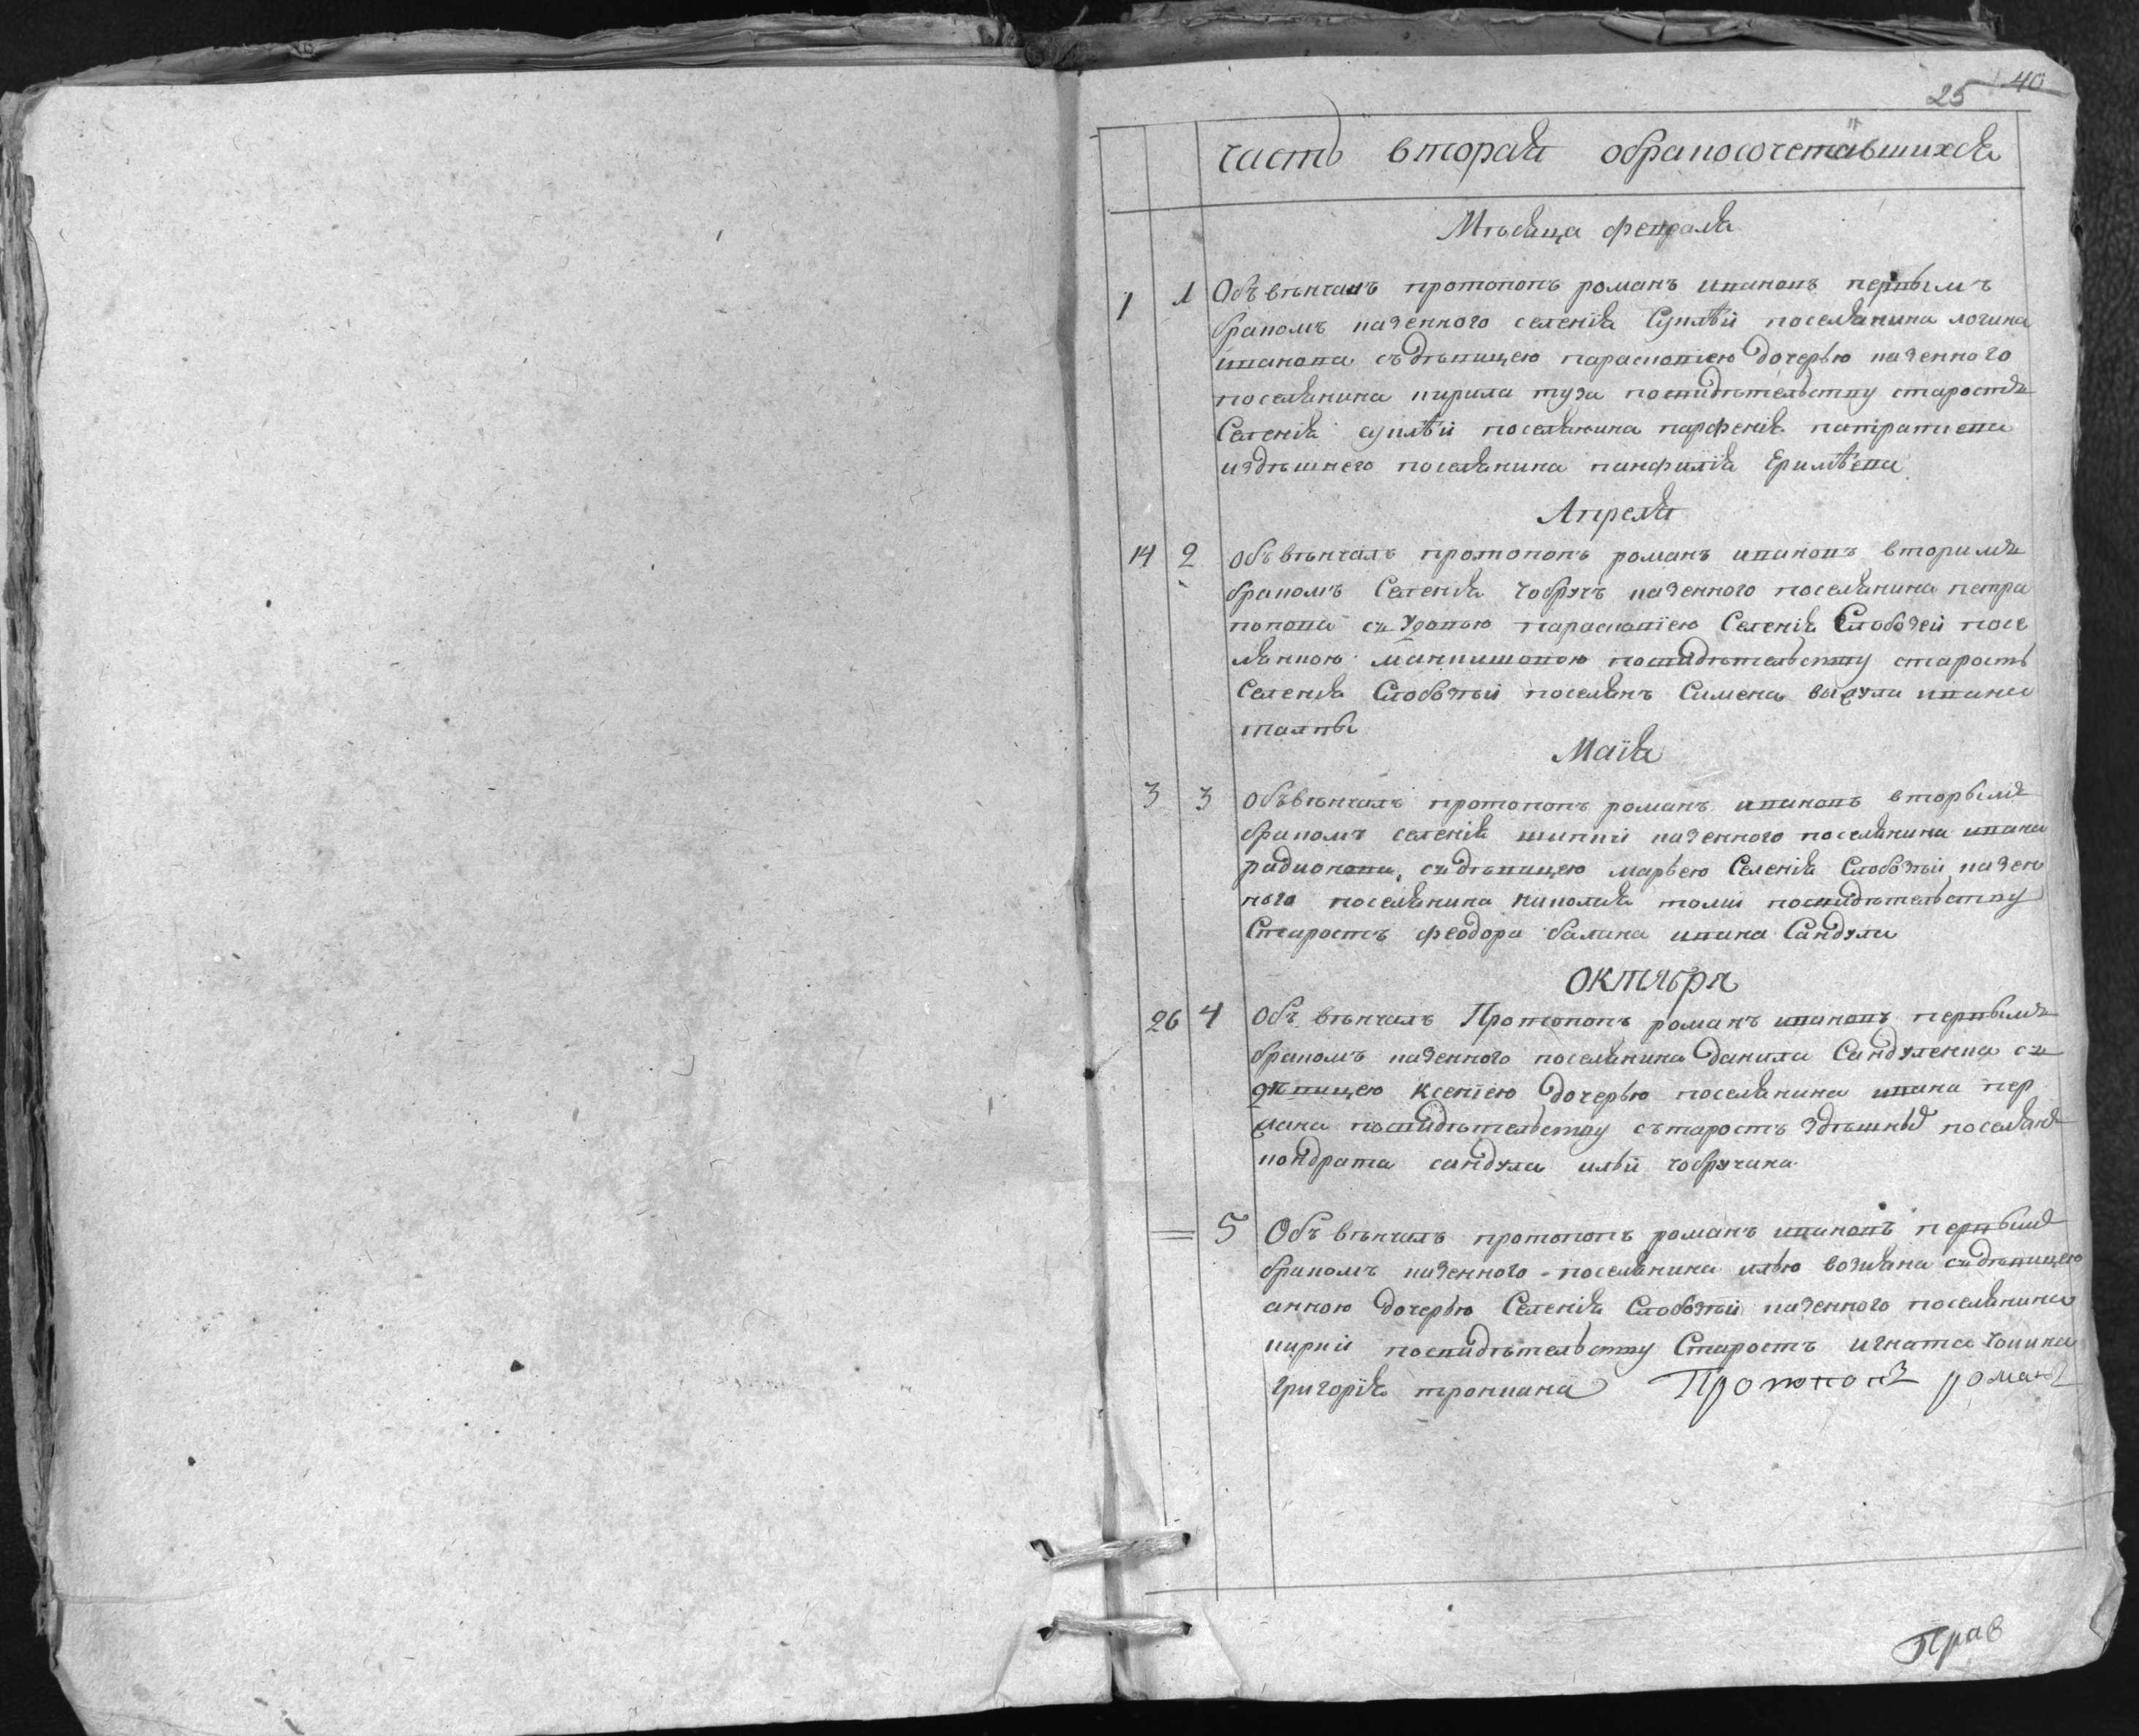 25 40
часть вторая обракосочетавшихся
Мѣсяца февраля
1 1 Объвѣнчанъ протопопъ романъ ивановъ первымъ
бракомъ казенного селенія Суклѣи поселянина логина
иванова съдѣвицею парасковіею дочерью казенного
поселянина кирила туза посвидѣтельству старостъ
Селенія суклѣи поселянина парфенія
издѣшнего поселянина панфилія Ермлѣева
Апреля
14 2 Объвѣнчалъ протопопъ романъ ивановъ вторимъ
бракомъ Селенія Чобручъ казенного поселянина петра
попова съ Удовою парасковіею Селенія Слободзеи посе
лянкою посвидѣтельству старостъ
Селенія Слобозѣи поселянъ Симена ивана
Маія
3 3 Объвѣнчалъ протопопъ романъ ивановъ вторымъ
бракомъ селенія казенного поселянина ивана
радионова, съдѣвицею марьею Селенія Слобозѣи казен
ного поселянина николая посвидѣтельству
Старостъ феодора балана ивана Сандули
Октября
26 4 Объ вѣнчалъ Протопопъ романъ ивановъ первымъ
бракомъ казенного поселянина данила Сандуленка съ
дѣвицею Ксеніею дочерью поселянина ивана
посвидѣтельству сътаростъ здѣшныхъ поселянъ
кондрата сандула илѣи чобручана
= 5 Объ вѣнчалъ протопопъ романъ ивановъ первымъ
бракомъ казенного поселянина илью возіяна съдѣвицею
анною дочерью Селенія Слобозѣи казенного поселянина
посвидѣтельству Старостъ игната
григорія трониана Протопопъ романъ
Прав